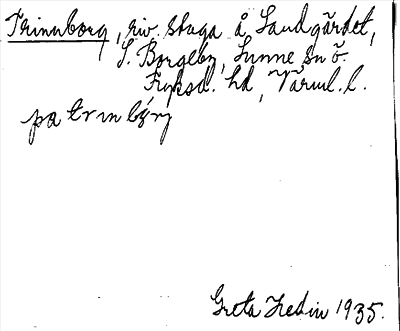 Trinnborg, riv. stuga å Sandgärdet,
S. Borgeby, Sunne sn ö.
Fryksd. hd, Värml. l.
pa trınbǿrj
Greta Hedin 1935.